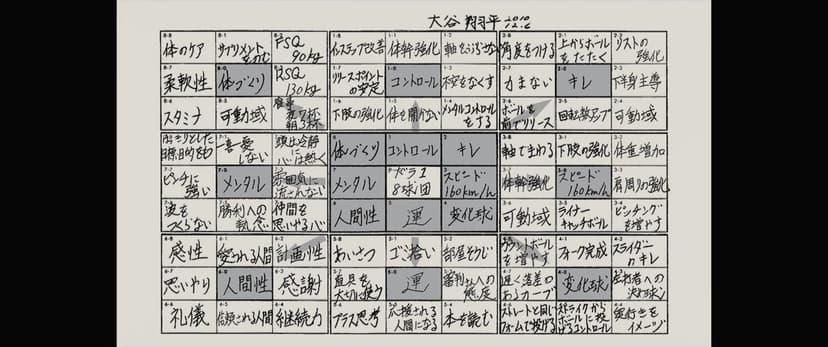 大谷 翔平
体のケア
サプリメント
をのむ
FSQ
90kg
インステップ改善
体幹強化
軸をぶらさない
角度をつける
上からボール
をたたく
リストの
強化
柔軟性
体づくり
RSQ
130kg
リリースポイント
の安定
コントロール
不安をなくす
力まない
キレ
下半身主導
スタミナ
可動域
食事
夜7杯
朝3杯
下肢の強化
体を開かない
メンタルコントロール
をする
ボールを
前でリリース
回転数アップ
可動域
はっきりとした
目標、目的をもつ
一喜一憂
しない
頭は冷静
に
心は熱く
体づくり
コントロール
キレ
軸でまわる
下肢の強化
体重増加
ピンチに
強い
メンタル
雰囲気に
流されない
メンタル
ドラ1
8球団
スピード
160km/h
体幹強化
スピード
160km/h
肩周りの強化
波を
つくらない
勝利への
執念
仲間を
思いやる心
人間性
運
変化球
可動域
ライナー
キャッチボール
ピッチング
を増やす
感性
愛される人間
計画性
あいさつ
ゴミ拾い
部屋そうじ
カウントボール
を増やす
フォーク完成
スライダー
のキレ
思いやり
人間性
感謝
道具を
大切に使う
運
審判さんへの
態度
遅く落差の
あるカーブ
変化球
左打者への
決め球
礼儀
信頼される人間
継続力
プラス思考
応援される
人間になる
本を読む
ストレートと同じ
フォームで投げる
ストライクから
ボールに投
げるコントロール
奥行きを
イメージ